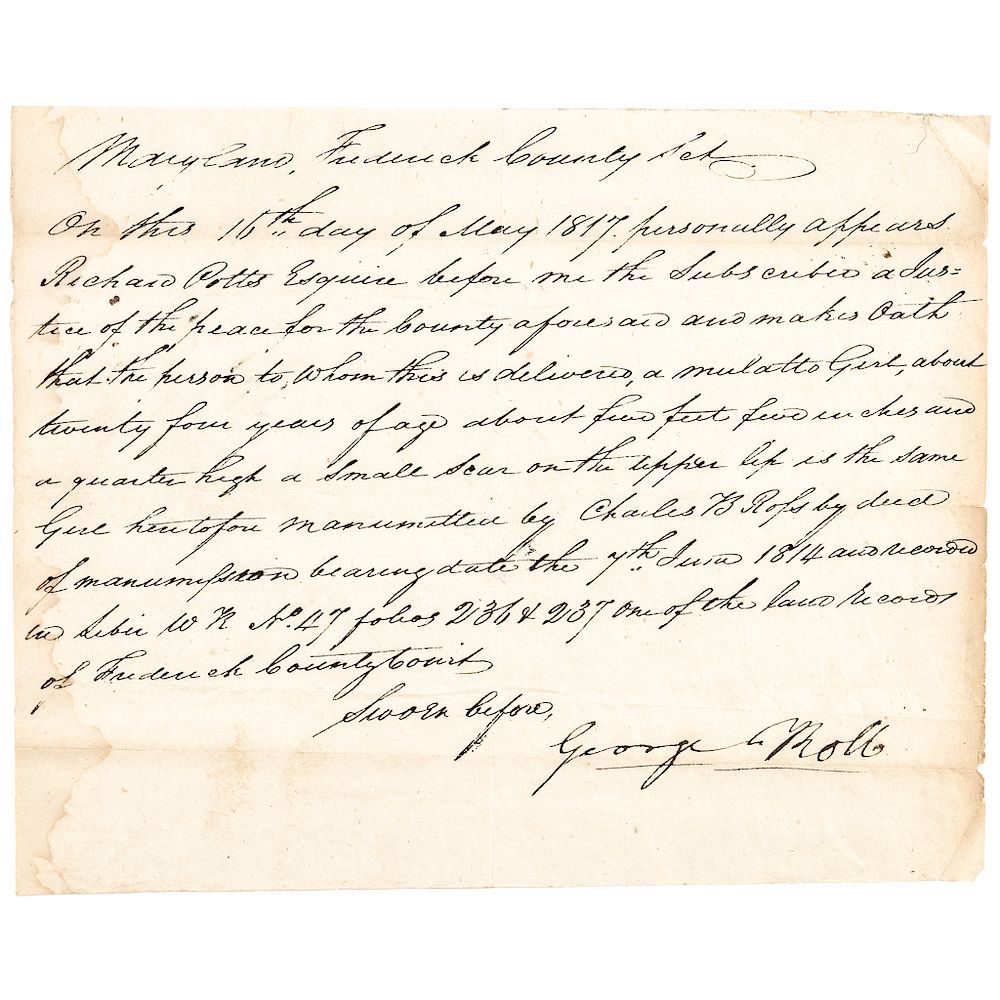 Maryland, Frederick County Sct
On this 16th day of May 1817. personally appears
Richard Potts Esquire before me the Subscriber a Jus=
tice of the peace for the County aforesaid and makes Oath
that the person to Whom this is delivered, a mulatto Girl, about
twenty four years of age about five feet five inches and
a quarter high a small Scar on the upper lip is the same
Girl heretofore manumitted by Charles B Ross by deed
of manumission bearing date the 7th June 1814 and recorded
in Liber W R No. 47 folios 236 & 237 One of the land records
of Frederick County Court
Sworn before,
George